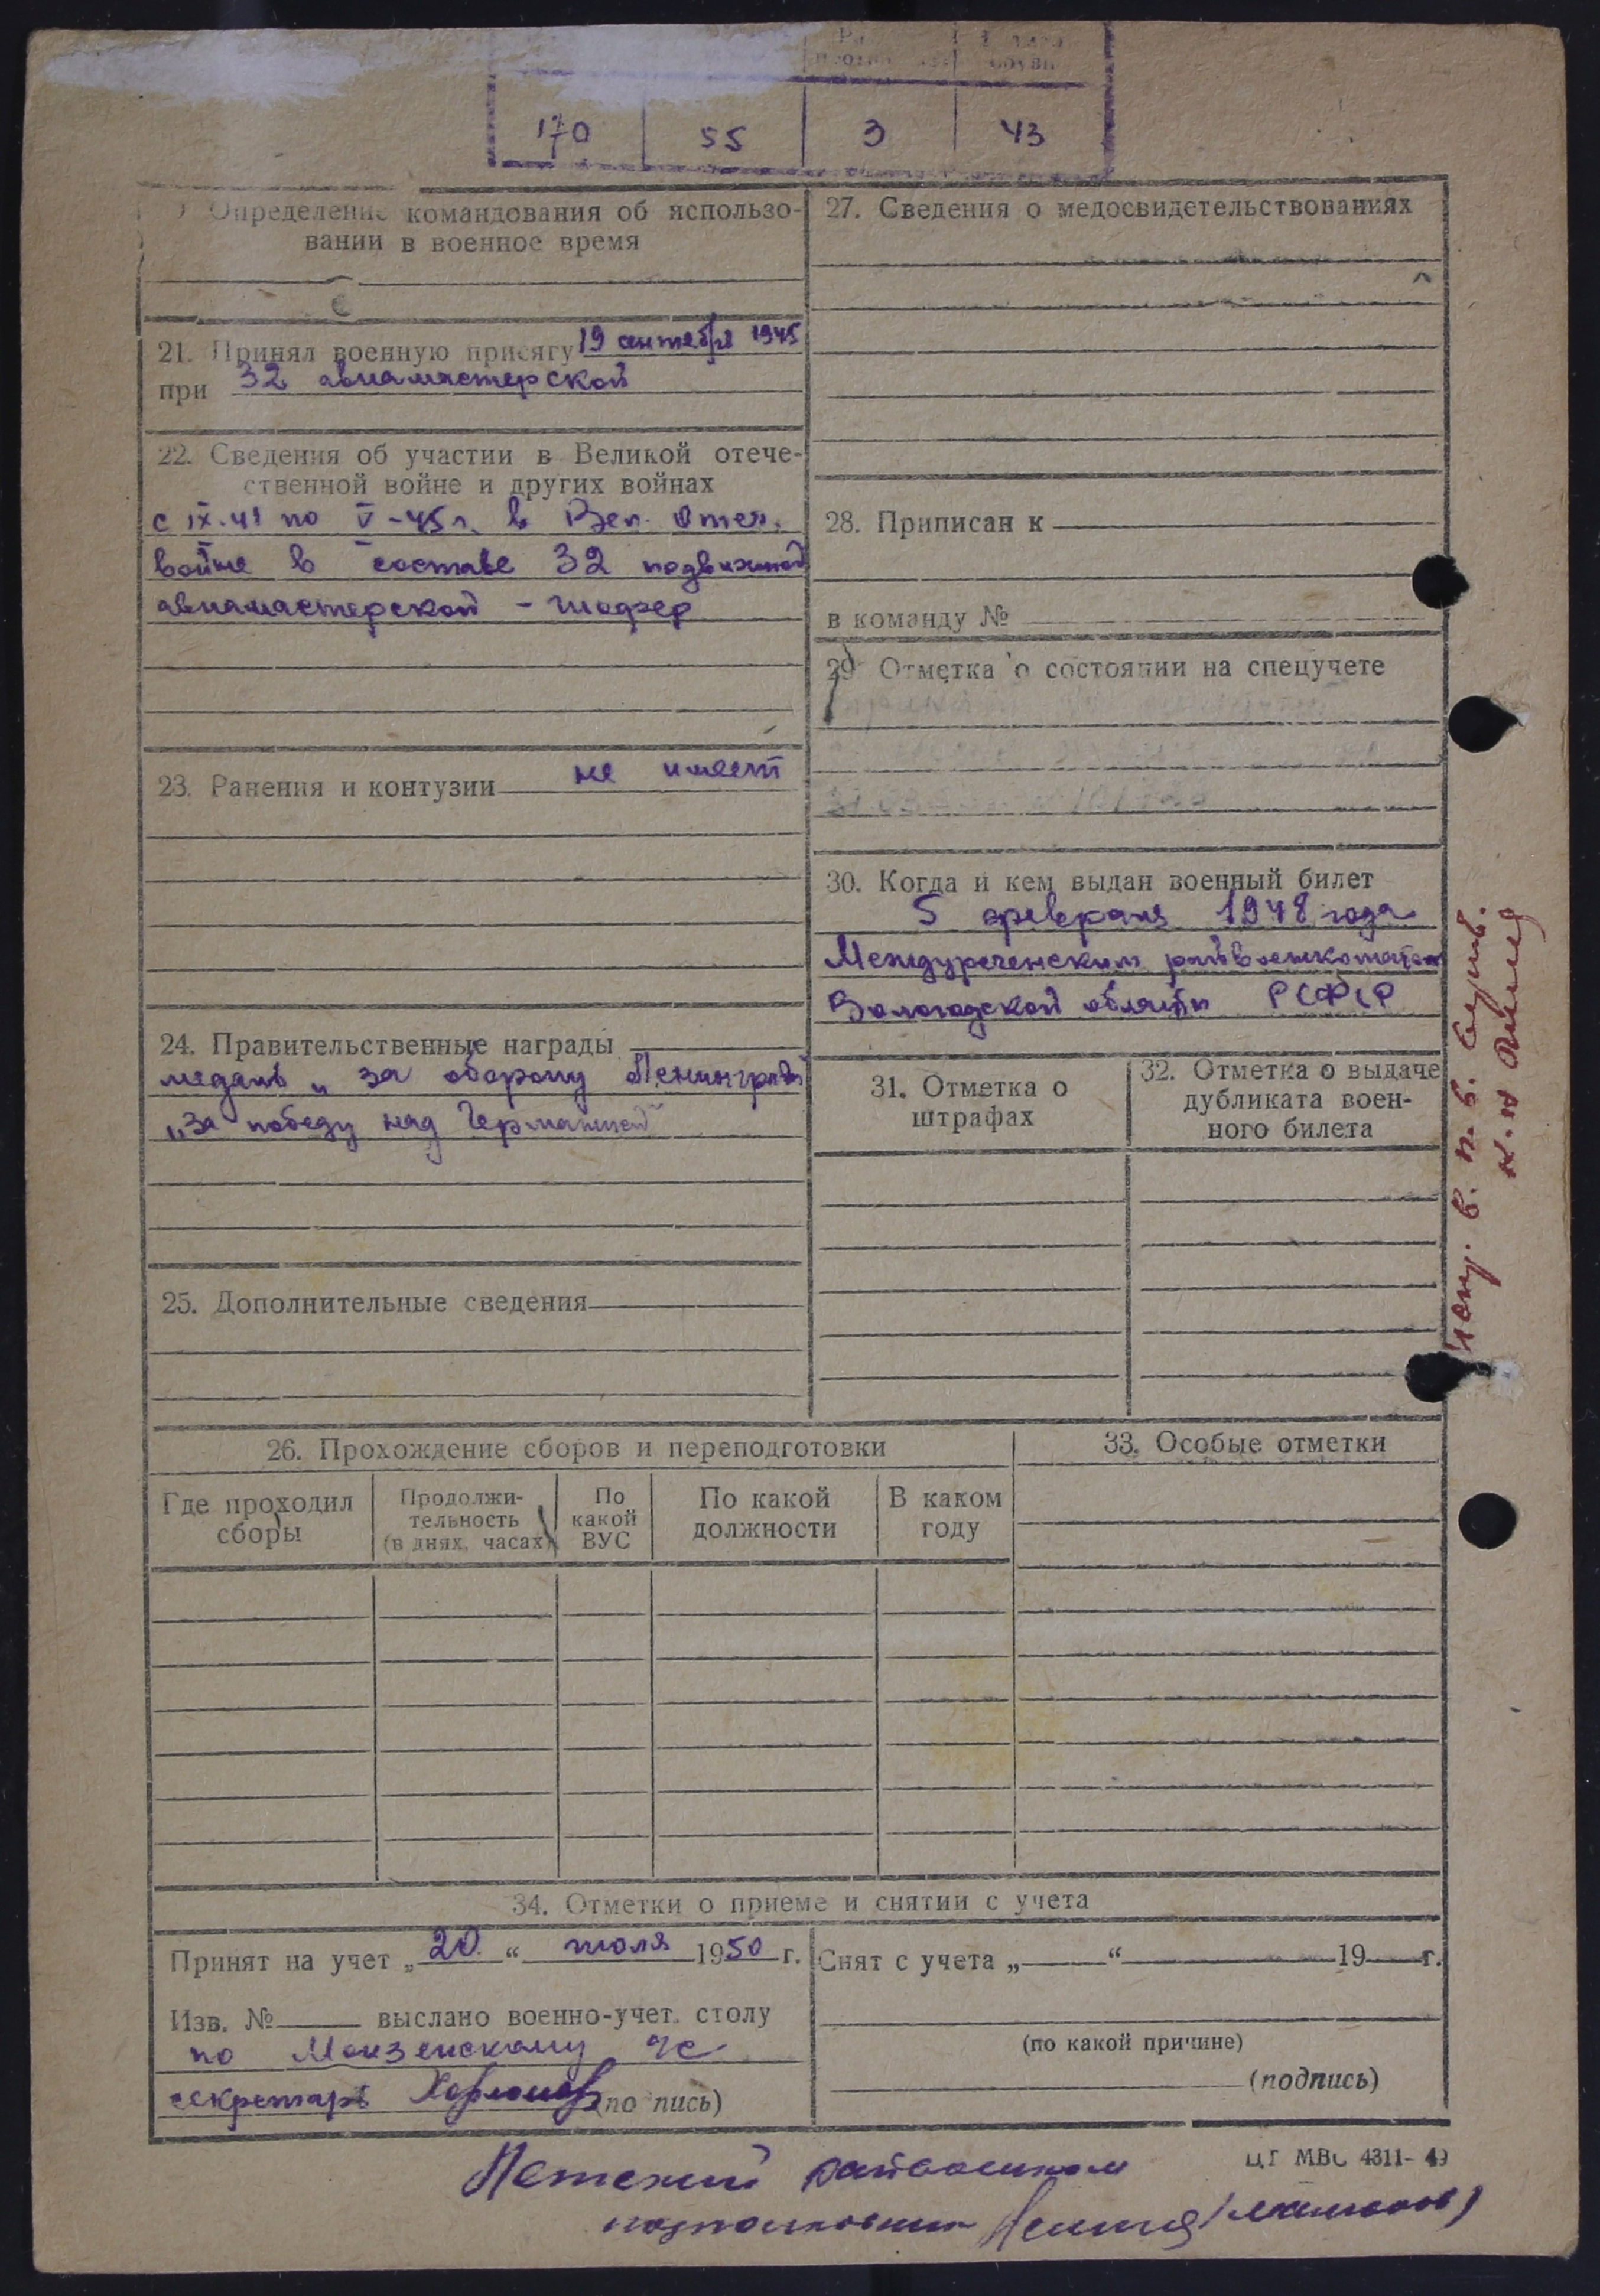 170 55 3 43
Определение командования об использо-
вании в военное время
21. Принял военную присягу 19 сентября 1945
при 32 авиамастерской
22. Сведения об участии в Великой отече-
ственной войне и других войнах
с IX-41 по V-45 г. в Вел. Отеч.
войне в составе 32 подвижной
авиамастерской - шофер
23. Ранения и контузии не имеет
24. Правительственные награды
медаль „за оборону Ленинграда
„за победу над Германией"
25. Дополнительные сведения
27. Сведения о медосвидетельствованиях
28. Приписан к
в команду №
29 Отметка о состоянии на спецучете
30. Когда и кем выдан военный билет
5 февраля 1948 года
Междуреченским райвоенкоматом
Вологодской области РСФСР
31. Отметка о
штрафах
32. Отметка о выдаче
дубликата воен-
ного билета
26. Прохождение сборов и переподготовки
Где проходил
сборы
Продолжи-
тельность
(в днях, часах)
По
какой
ВУС
По какой
должности
В каком
году
33. Особые отметки
34. Отметки о приеме и снятии с учета
Принят на учет „20“ июля 1950 г.
Изв. № выслано военно-учет. столу
по Монзенскому с/с
секретарь (по пись)
Снят с учета „ “ 19 г.
(по какой причине)
(подпись)
ЦТ МВС 4311-49
подполковник